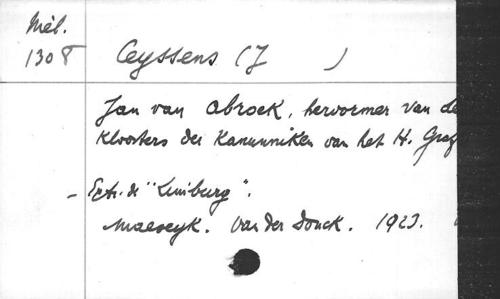 Mél.
1308
Ceyssens (J )
Jan van Abroek, hervormer van de
Kloosters der Kanunniken van het H. Graf
- Extr. de "Limburg".
Maeseyk. Van der Donck. 1923.